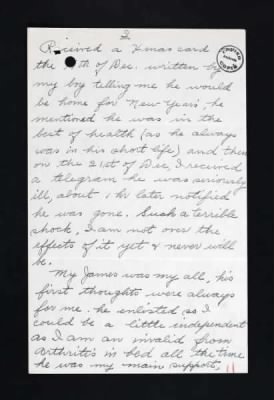 2
Received a Xmas card
the th of Dec. written by
my boy telling me he would
be home for New Years, he
mentioned he was in the
best of health (as he always
was in his short life) and then
on the 21st of Dec, I received
a telegram he was seriously
ill, about 1 hr later notified
he was gone. Such a terrible
shock, I am not over the
effects of it yet & never will
be.
My James was my all, his
first thoughts were always
for me. he enlisted so I
could be a little independent
as I am an invalid from
Arthritis in bed all the time
he was my main support,